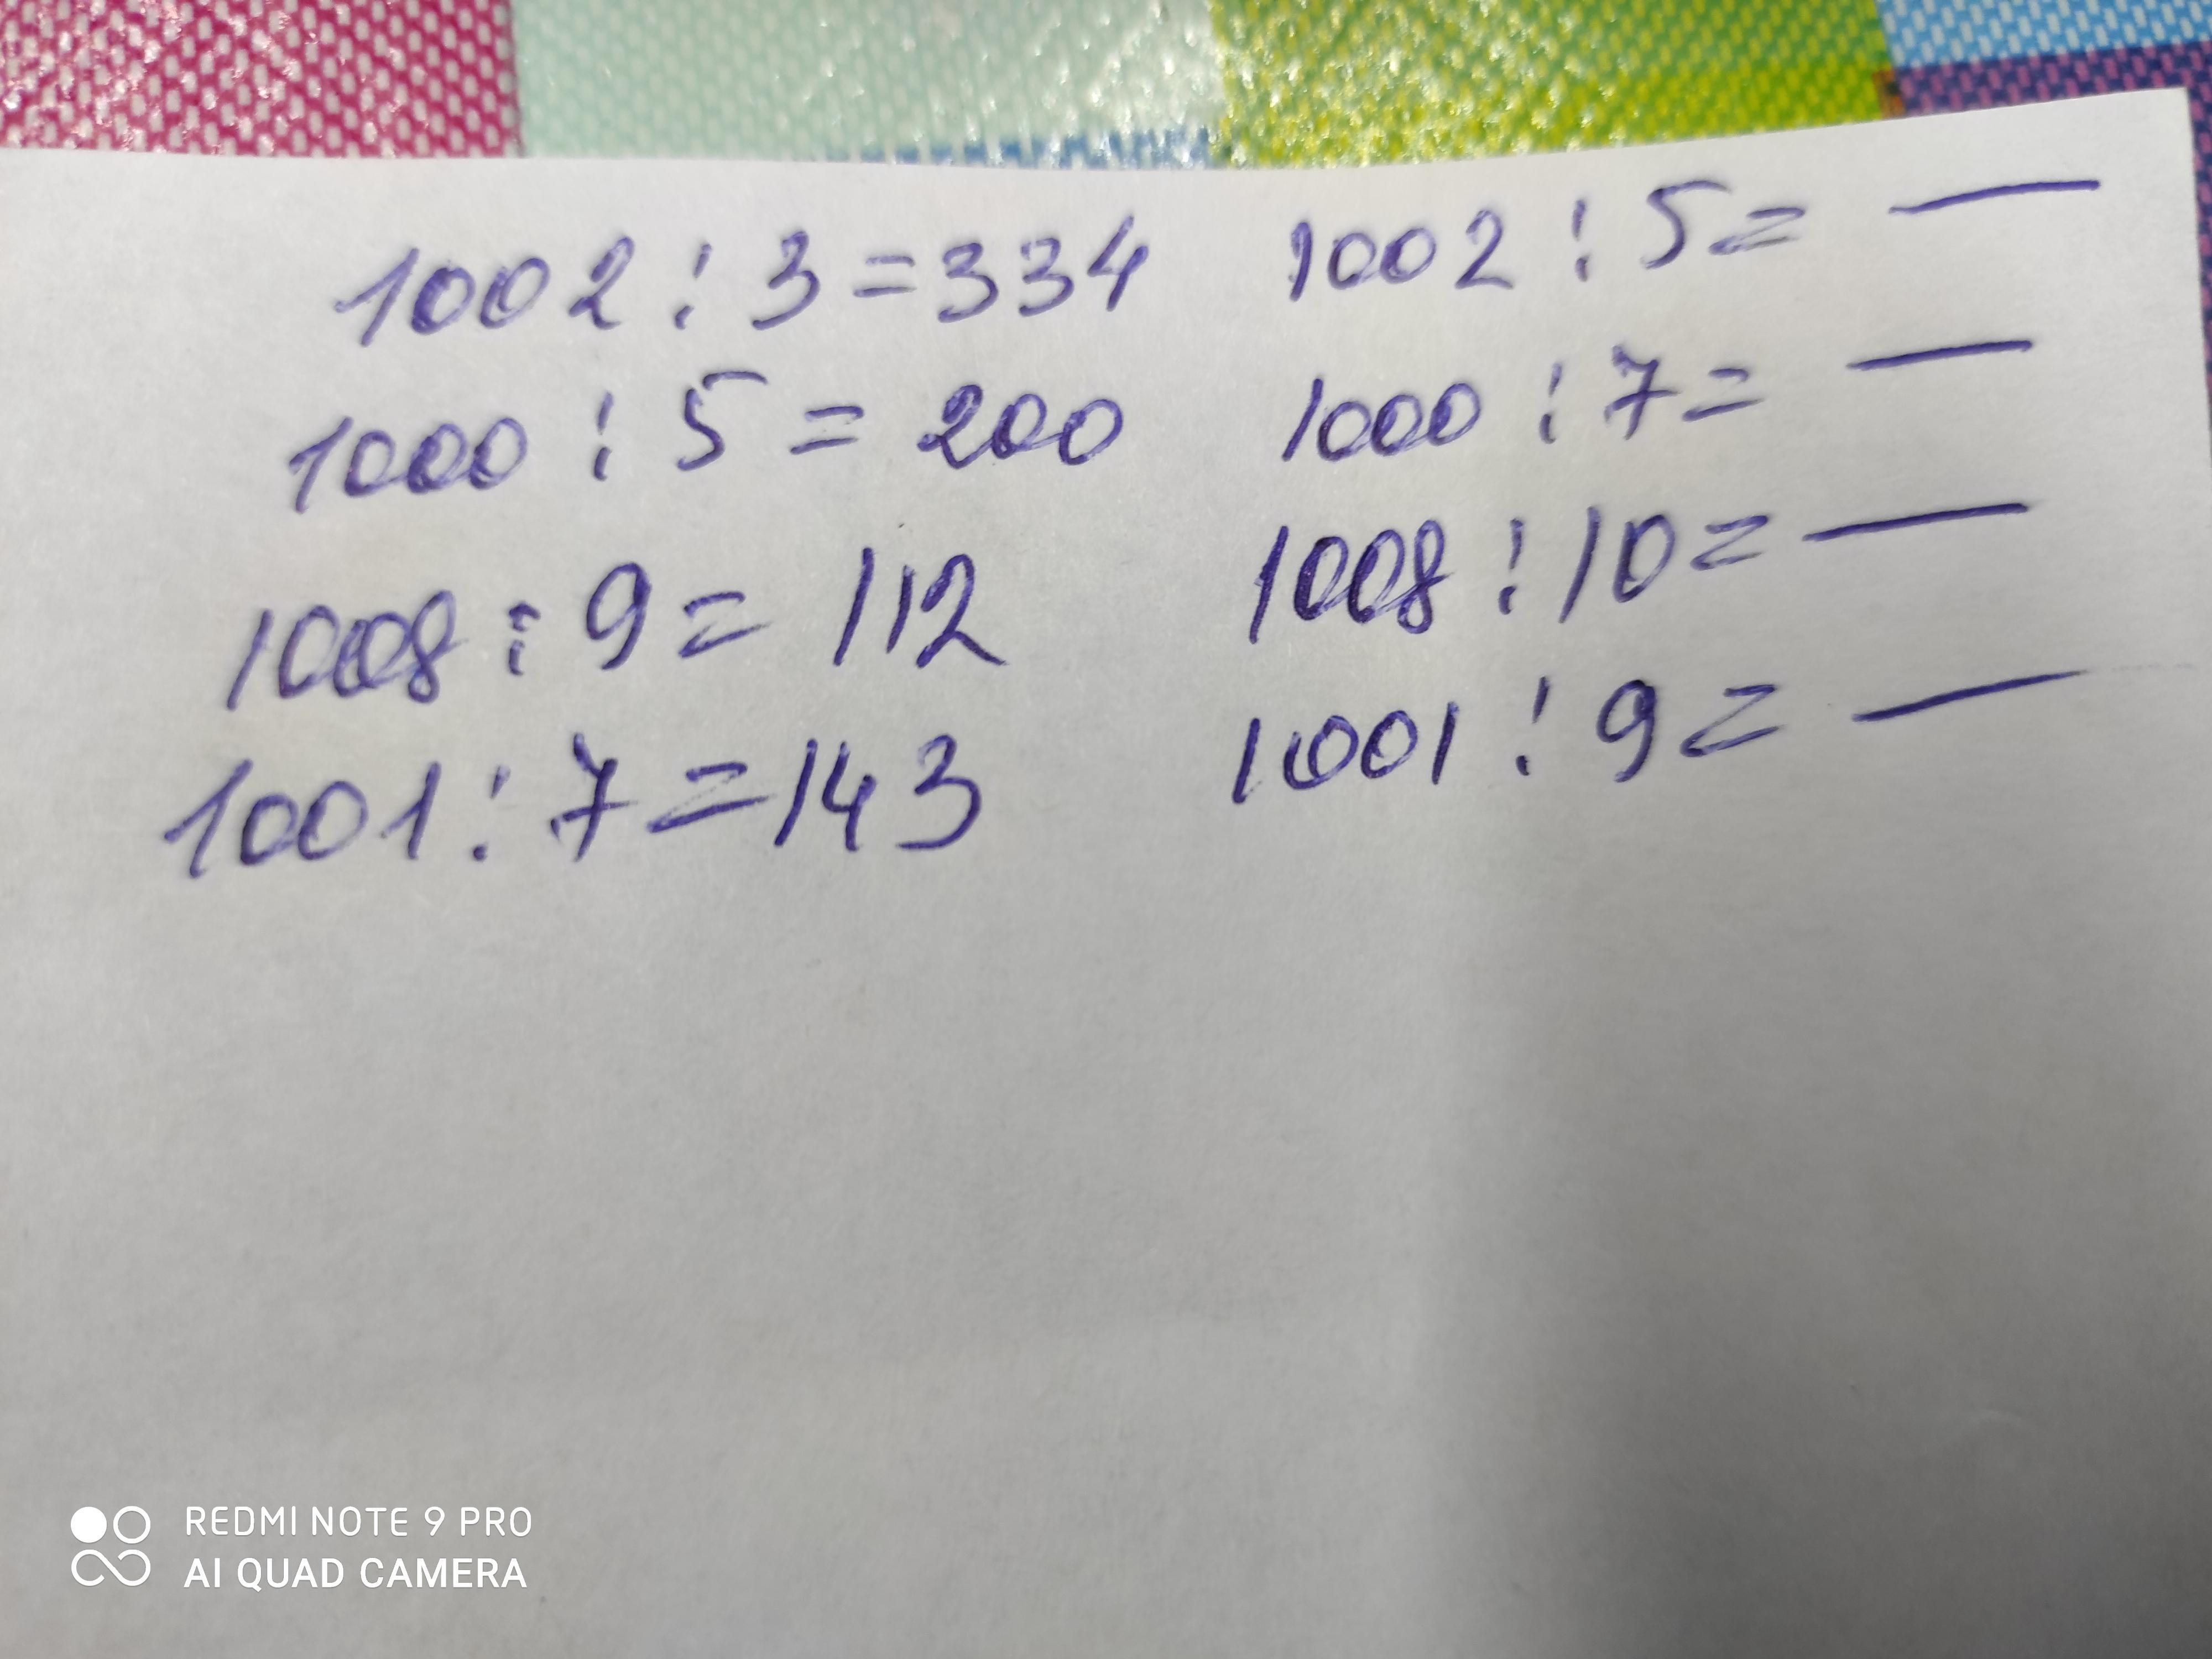 1002 : 3 = 334 1002 : 5 = —
1000 : 5 = 200 1000 : 7 = —
1008 : 9 = 112 1008 : 10 = —
1001 : 7 = 143 1001 : 9 = —
REDMI NOTE 9 PRO
AI QUAD CAMERA